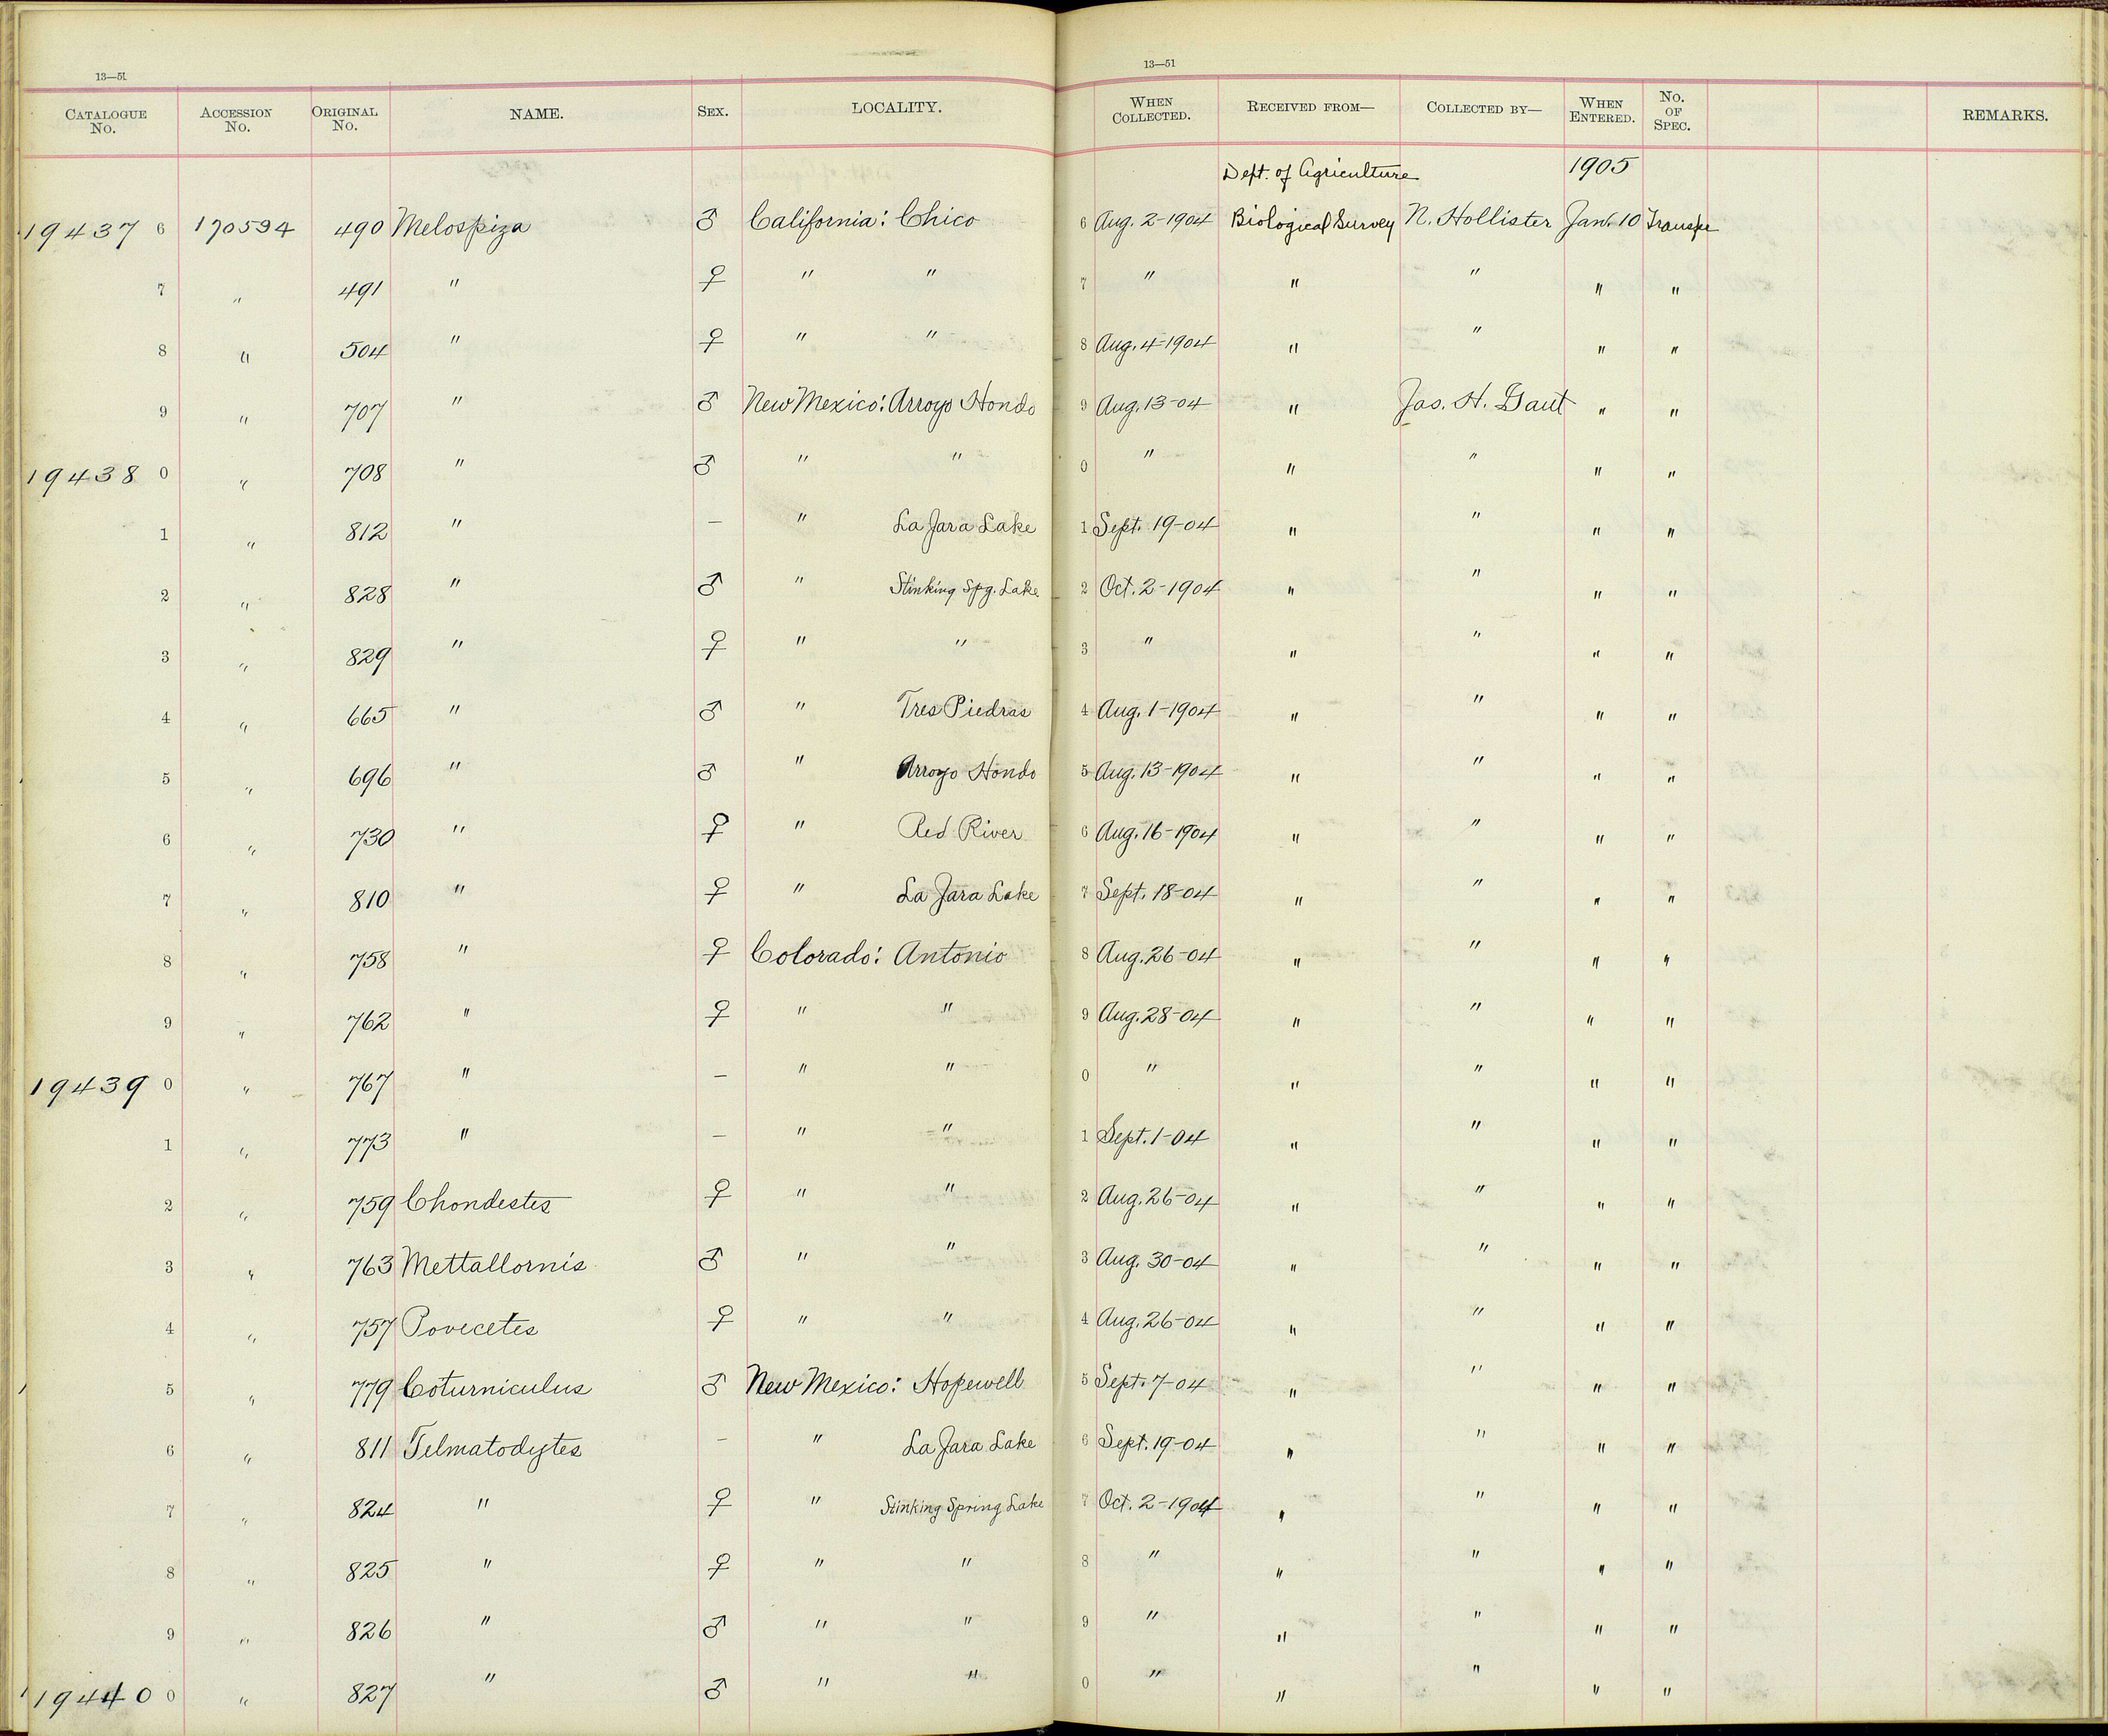 13—51
13—51
CATALOGUE No. ACCESSION No. ORIGINAL No. NAME. SEX. LOCALITY. WHEN COLLECTED. RECEIVED FROM— COLLECTED BY— WHEN ENTERED. No. OF SPEC. REMARKS.
Dept. of Agriculture 1905
19437 6 170594 490 Melospiza ♂ California: Chico 6 Aug. 2-1904 Biological Survey N. Hollister Jan. 10 Transfe
7 " 491 " ♀ " " 7 " " " " "
8 " 504 " ♀ " " 8 Aug. 4-1904 " " " "
9 " 707 " ♂ New Mexico: Arroyo Hondo 9 Aug. 13-04 " Jas. H. Gaut " "
19438 0 " 708 " ♂ " " 0 " " " " "
1 " 812 " — " La Jara Lake 1 Sept. 19-04 " " " "
2 " 828 " ♂ " Stinking Spg. Lake 2 Oct. 2-1904 " " " "
3 " 829 " ♀ " " 3 " " " " "
4 " 665 " ♂ " Tres Piedras 4 Aug. 1-1904 " " " "
5 " 696 " ♂ " Arroyo Hondo 5 Aug. 13-1904 " " " "
6 " 730 " ♀ " Red River 6 Aug. 16-1904 " " " "
7 " 810 " ♀ " La Jara Lake 7 Sept. 18-04 " " " "
8 " 758 " ♀ Colorado: Antonio 8 Aug. 26-04 " " " "
9 " 762 " ♀ " " 9 Aug. 28-04 " " " "
19439 0 " 767 " — " " 0 " " " " "
1 " 773 " — " " 1 Sept. 1-04 " " " "
2 " 759 Chondestes ♀ " " 2 Aug. 26-04 " " " "
3 " 763 Mettallornis ♂ " " 3 Aug. 30-04 " " " "
4 " 757 Povecetes ♀ " " 4 Aug. 26-04 " " " "
5 " 779 Coturniculus ♂ New Mexico: Hopewell 5 Sept. 7-04 " " " "
6 " 811 Telmatodytes — " La Jara Lake 6 Sept. 19-04 " " " "
7 " 824 " ♀ " Stinking Spring Lake 7 Oct. 2-1904 " " " "
8 " 825 " ♀ " " 8 " " " " "
9 " 826 " ♂ " " 9 " " " " "
19440 0 " 827 " ♂ " " 0 " " " " "